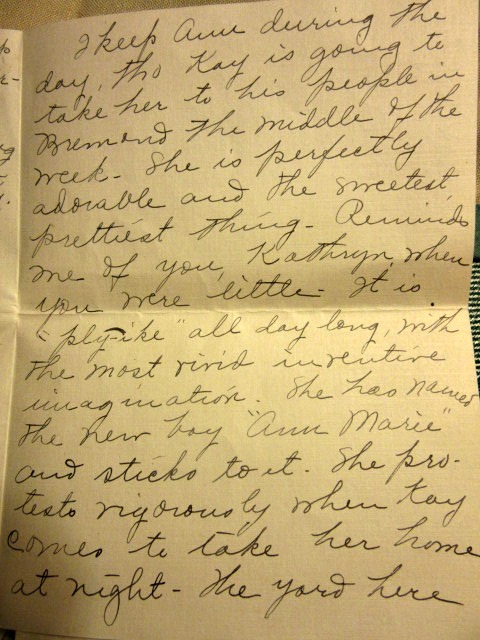 I keep Ann during the
day, tho Kay is going to
take her to his people in
Bremond the middle of the
week - She is perfectly
adorable and the sweetest,
prettiest thing - Reminds
me of you, Kathryn, when
you were little - It is
"ply-ike" all day long, with
the most vivid inventive
imagination. She has named
the new boy "Ann Marie"
and sticks to it. She pro-
tests vigorously when Kay
comes to take her home
at night - The yard here